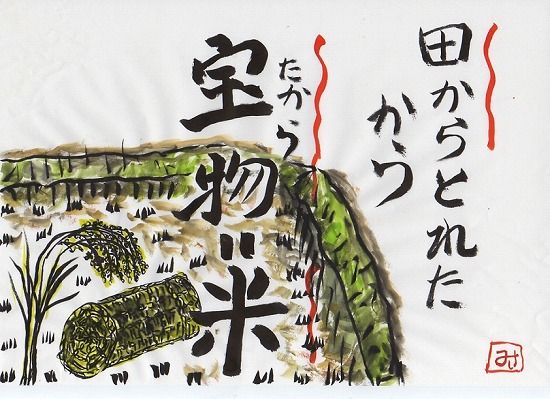 田からとれた
から
たから
宝物=米
み